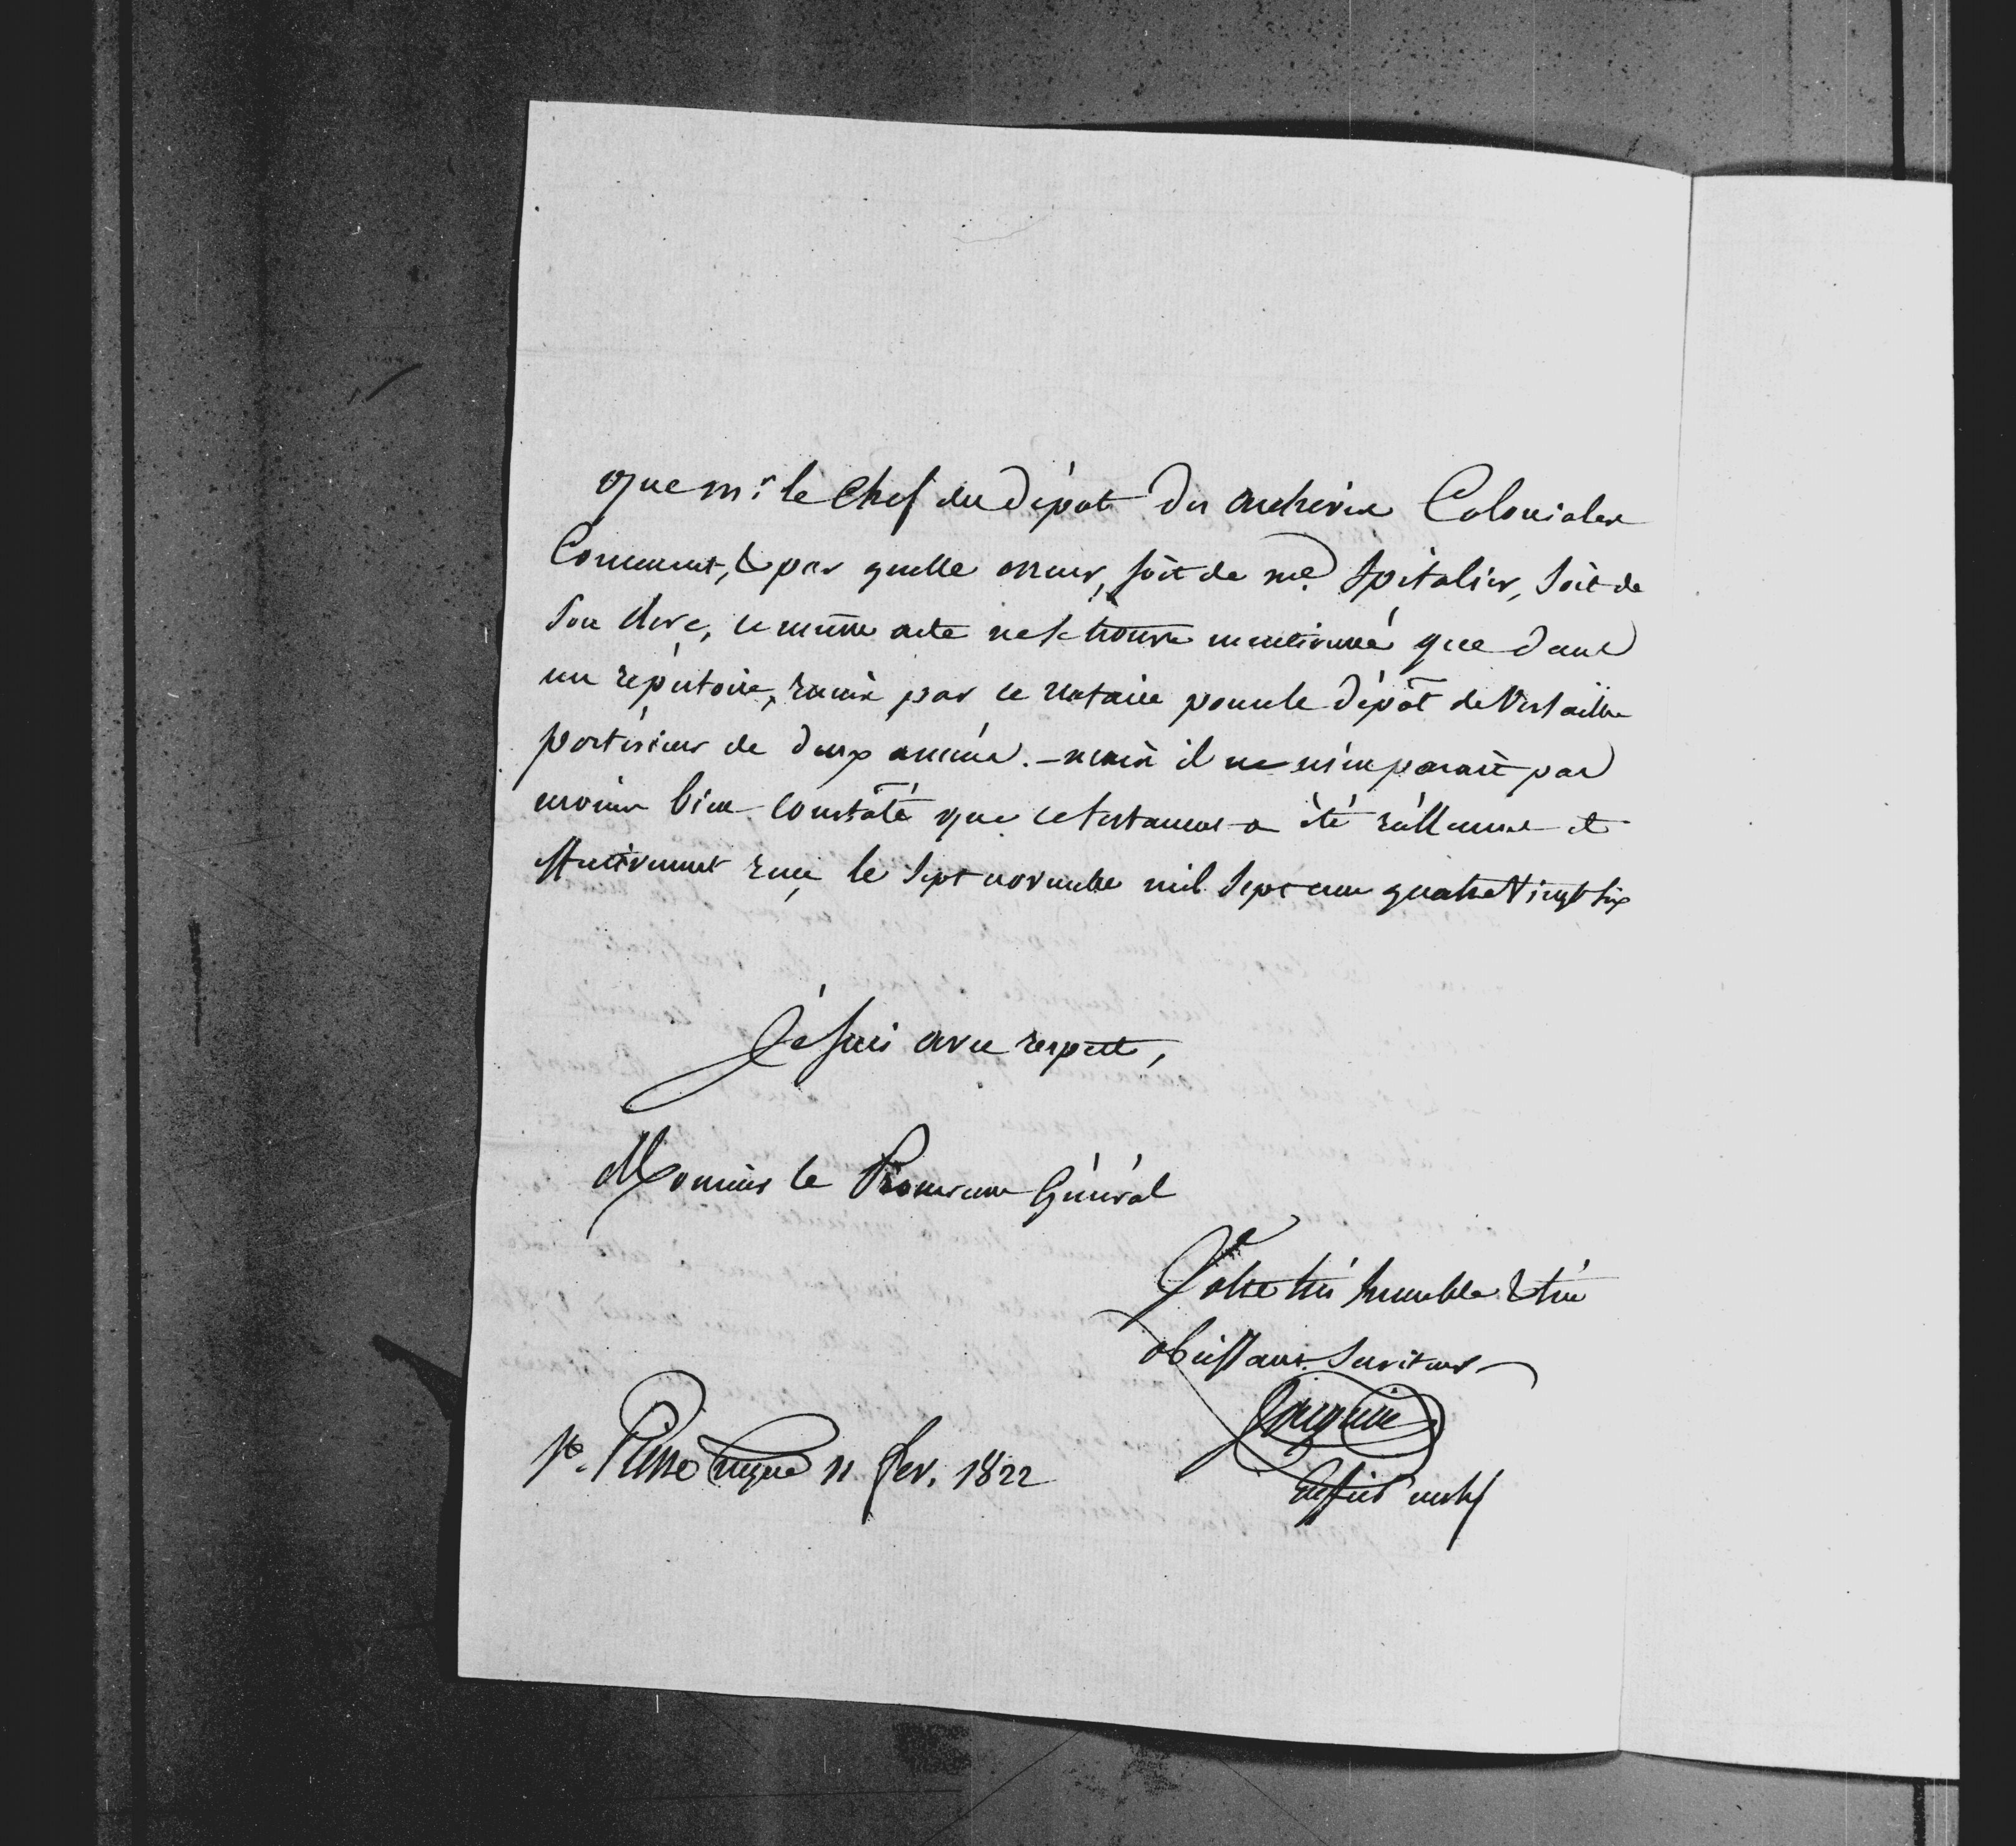 que mr. le Chef du dépot des archives Coloniales
Comment, & par quelle erreur, soit de me. Spitalier, soit de
son clerc, ce même acte ne se trouve mentionné que dans
un répertoire, remis par ce notaire pour le dépôt de Versailles
postérieur de deux années. - mais il ne m'en parait pas
moins bien constaté que ce testament a été réellement et
effectivement reçu le sept novembre mil sept cent quatre Vingt six
Je suis avec respect,
Monsieur le Procureur Général
Votre très humble & très
obeissant Serviteur
St. Pierre 11 fev. 1822